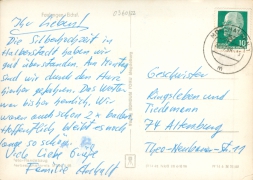 Ihr Lieben!
Die Silberhochzeit in
Halberstadt haben wir
gut überstanden. Am Montag
sind wir durch den Harz
hierher gefahren. Das Wetter
war bisher herrlich. Wir
waren auch schon 2 x baden
Hoffentlich bleibt es noch
lange so schön.
Viele liebe Grüße
Familie Anhalt
Geschwister
Ringsleben und
Tiedemann
74 Altenburg
Theo-Neubauer-St. 11
10